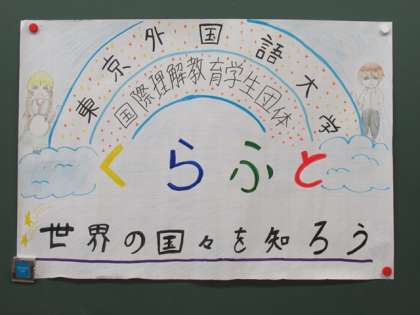 東京外国語大学
国際理解教育学生団体
くらふと
世界の国々を知ろう